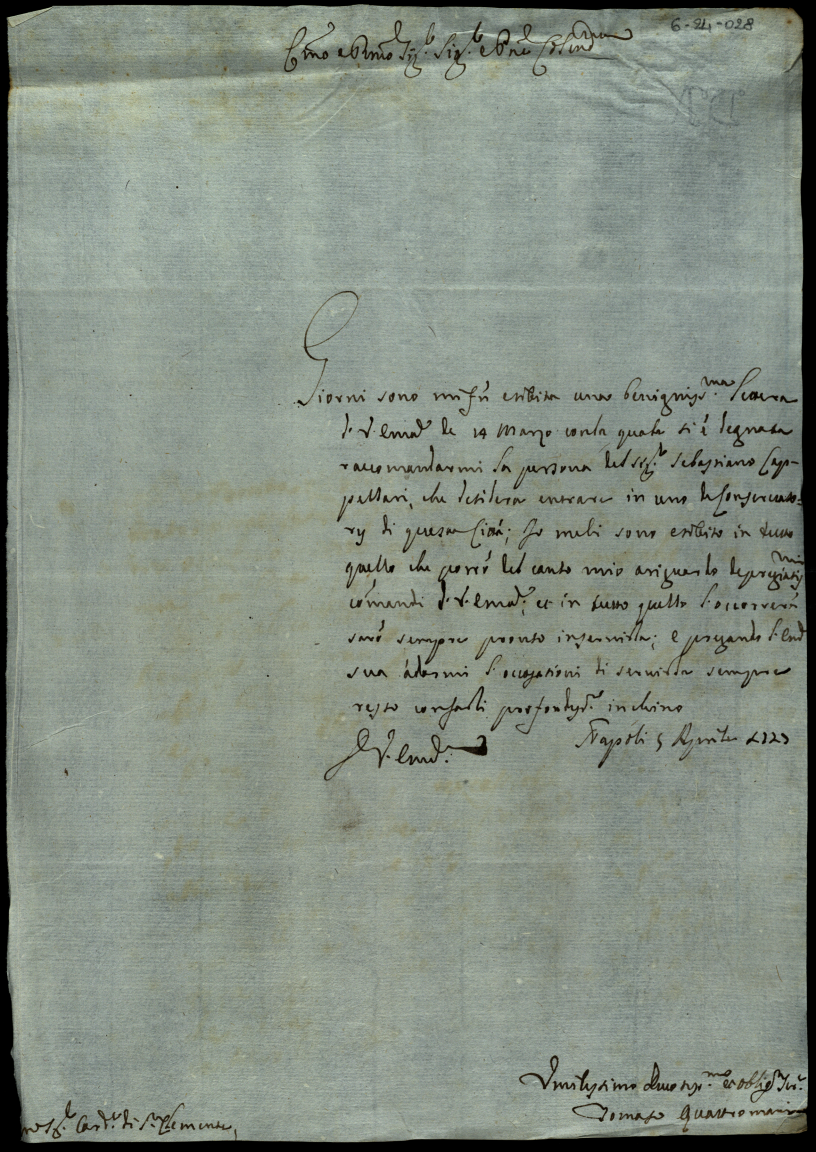 6-24-028
Em̃o e Rm̃o Sig.r Sig.r e Pñe Col̃mo
Giorni sono mi fù esibita una benigniss.ma lettera
di V. Em̃a de 14 Marzo con la quale si è degnata
raccomandarmi la persona del sig.r Sebastiano Cap-
pellari, che desidera entrare in uno de Conservato=
rij di questa Città; Io me li sono esibito in tutto
quello che potrò dal canto mio a riguardo de pregiatis.mi
com̃andi di V. Em̃a; et in tutto quello l'occorrerà
sarò sempre pronto in servirla; e pregando l'Em̃a
sua à darmi l'occasioni di servirla sempre
resto con farli profondiss.o inchino
Di V. Em̃a
Napoli 5 Aprile
Umilissimo Devotiss.mo et oblig.mo Ser.e
Tomaso Quattromani
Sig.r Card.le di S. Clemente